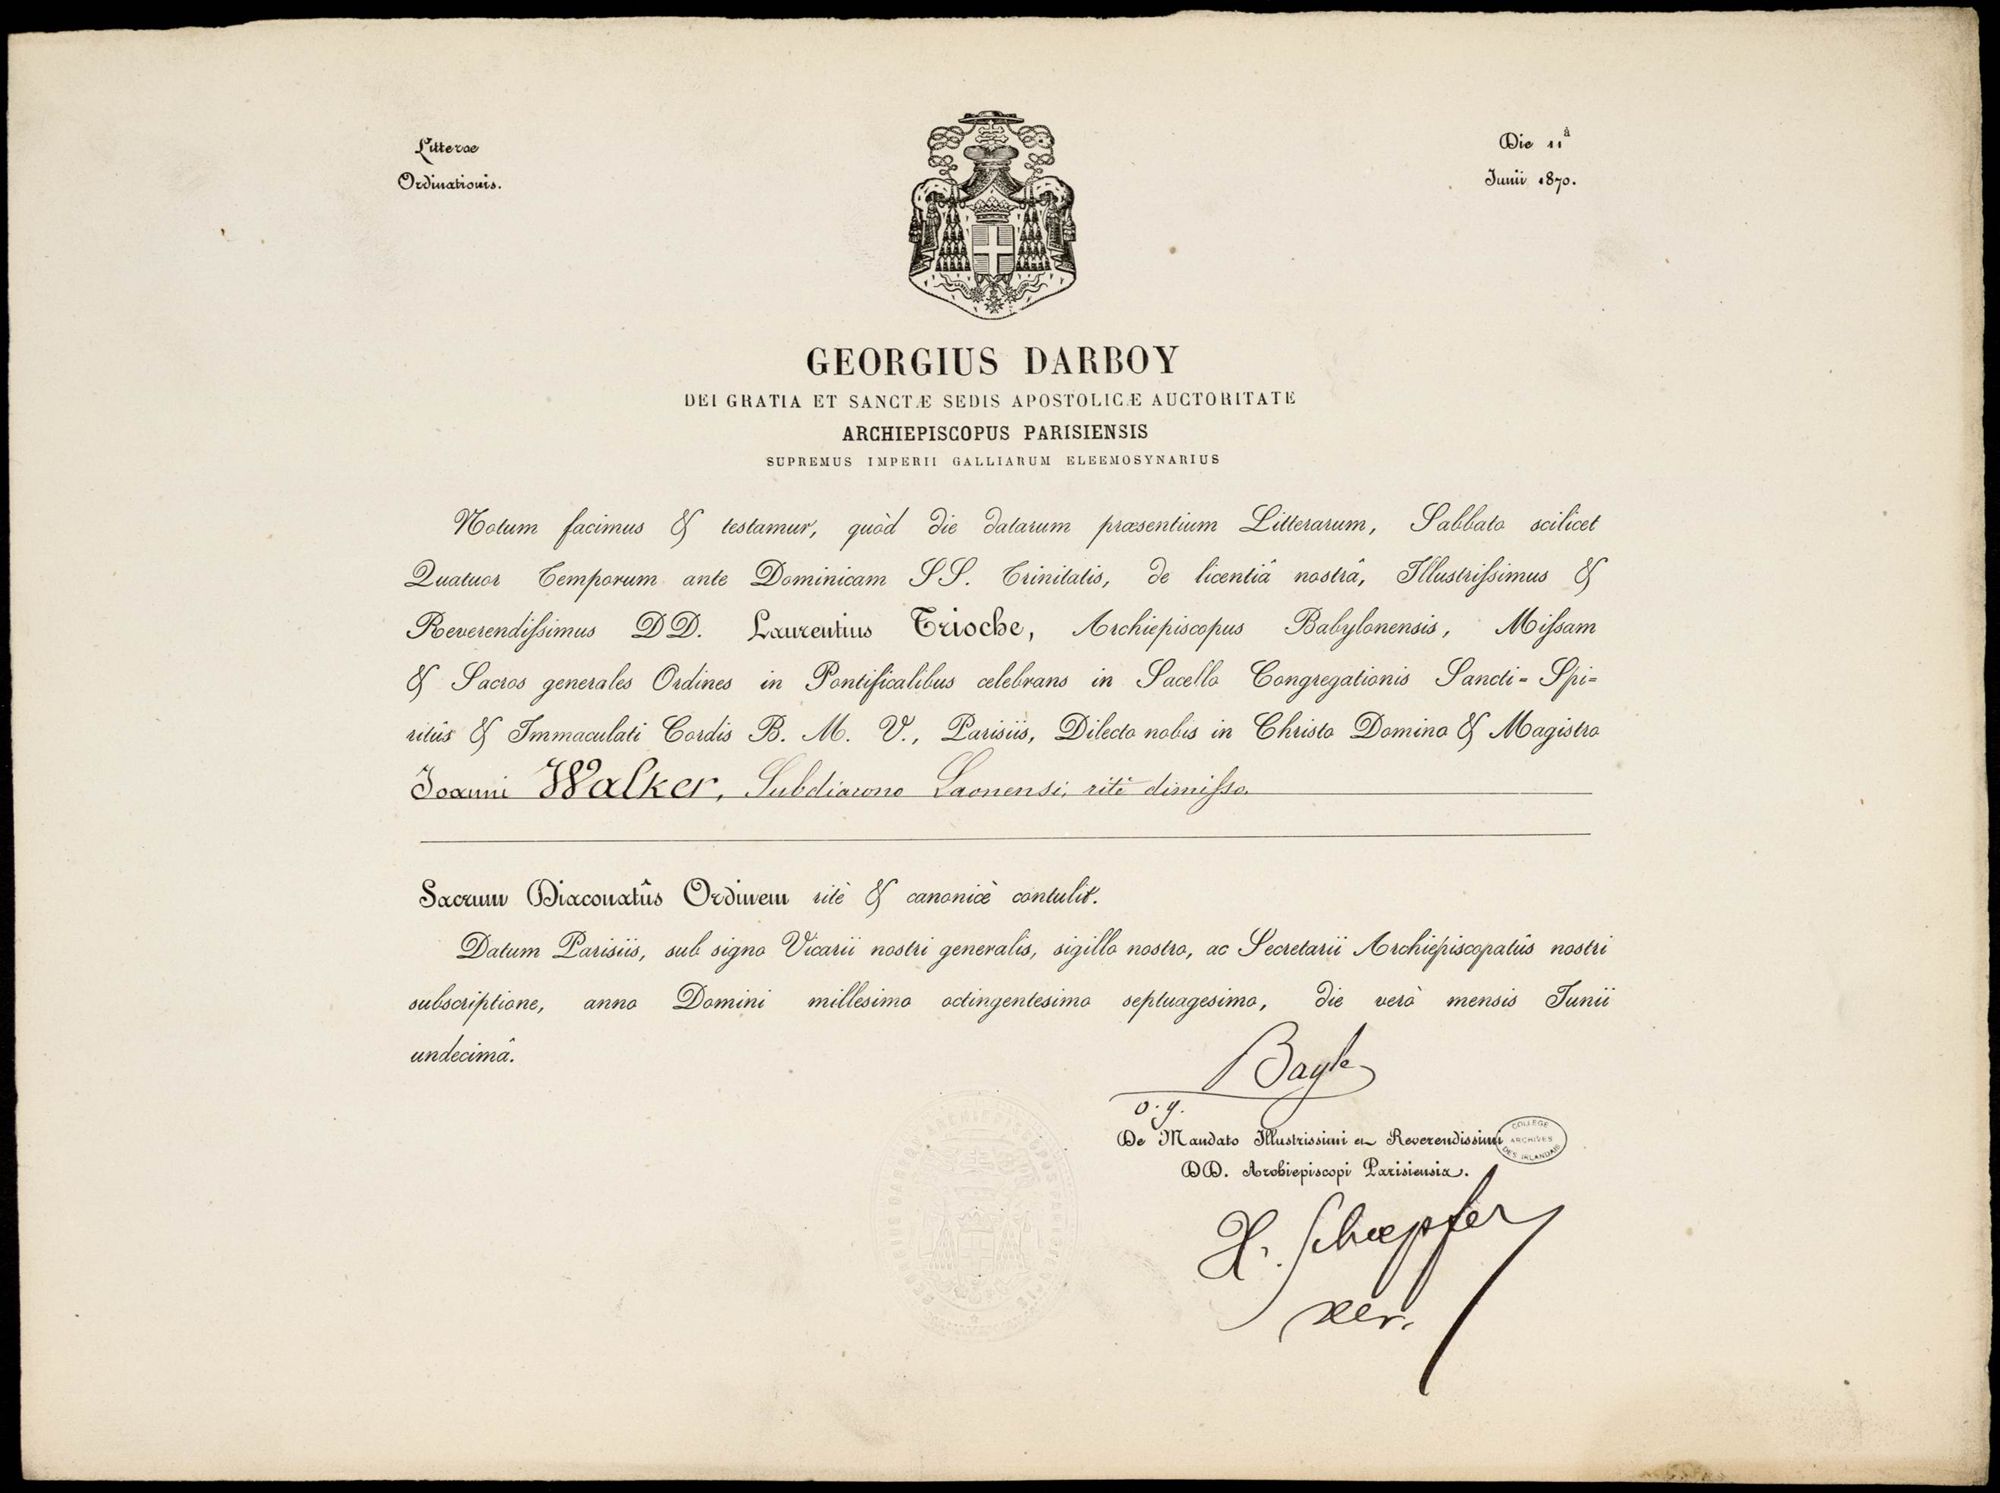 Litterae
Ordinationis.
Die 11ª
Junii 1870.
GEORGIUS DARBOY
DEI GRATIA ET SANCTÆ SEDIS APOSTOLICÆ AUCTORITATE
ARCHIEPISCOPUS PARISIENSIS
SUPREMUS IMPERII GALLIARUM ELEEMOSYNARIUS
Notum facimus & testamur, quòd die datarum præsentium Litterarum, Sabbato scilicet
Quatuor Temporum ante Dominicam SS. Trinitatis, de licentiâ nostrâ, Illustrissimus &
Reverendissimus DD. Laurentius Trioche, Archiepiscopus Babylonensis, Missam
& Sacros generales Ordines in Pontificalibus celebrans in Sacello Congregationis Sancti-Spi-
ritûs & Immaculati Cordis B. M. V., Parisiis, Dilecto nobis in Christo Domino & Magistro
Joanni Walker, Subdiacono Laonensi, ritè dimisso.
Sacrum Diaconatûs Ordinem ritè & canonicè contulit.
Datum Parisiis, sub signo Vicarii nostri generalis, sigillo nostro, ac Secretarii Archiepiscopatûs nostri
subscriptione, anno Domini millesimo octingentesimo septuagesimo, die verò mensis Junii
undecimâ.
Bayle
v. g.
De Mandato Illustrissimi et Reverendissimi
DD. Archiepiscopi Parisiensis.
COLLEGE
ARCHIVES
DES IRLANDAIS
H. Schoepfer